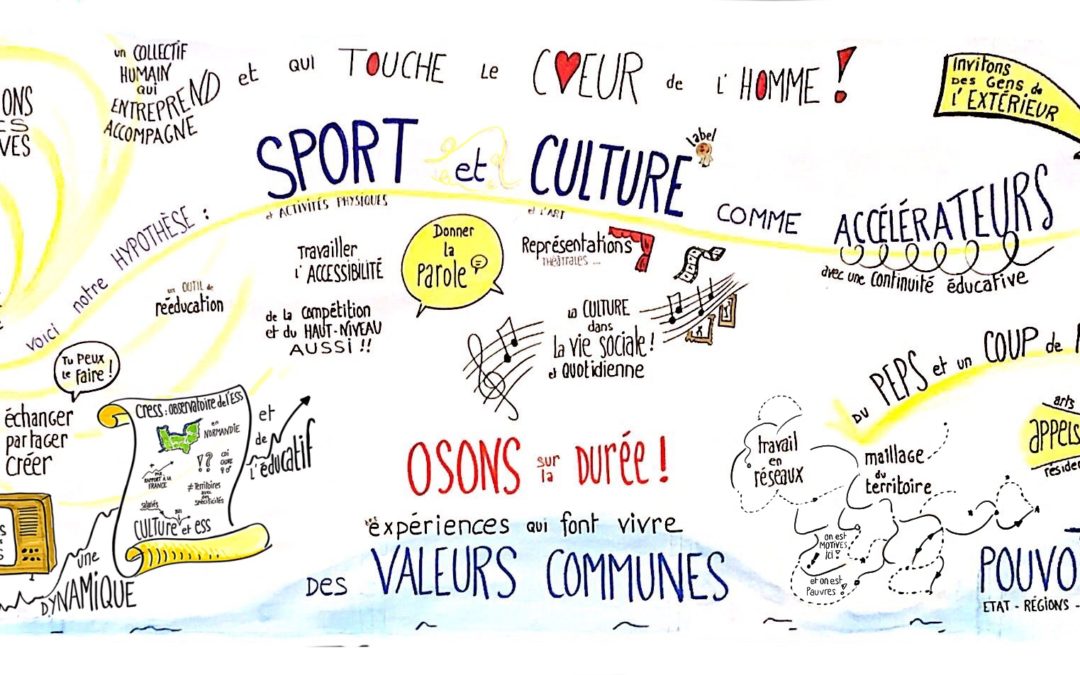 IONS
ES
VES
un COLLECTIF
HUMAIN
qui
ENTREPREND
ACCOMPAGNE
et qui TOUCHE le CŒUR de l'HOMME !
Invitons
DES Gens de
L'EXTÉRIEUR
voici notre HYPOTHÈSE :
SPORT et CULTURE
label
et ACTIVITÉS PHYSIQUES
et L'ART
COMME ACCÉLÉRATEURS
avec une continuité éducative
un OUTIL de
rééducation
Travailler
l'ACCESSIBILITÉ
de la compétition
et du HAUT-NIVEAU
AUSSI !!
Donner
la
PAROLE
Représentations
THÉÂTRALES ...
la CULTURE
dans
la vie sociale !
et quotidienne
DU PEPS et un COUP de
Tu peux
le faire !
échanger
partager
créer
Cress : observatoire de l'ESS
en
NORMANDIE
PAR
RAPPORT À LA
FRANCE
≠ territoires
avec des
spécificités
salariés
CULTURE et ESS
et
de
l'éducatif
une
DYNAMIQUE
OSONS sur la DURÉE !
expériences qui font vivre
DES VALEURS COMMUNES
travail
en
réseaux
maillage
du
territoire
on est
MOTIVÉS
ici !
et on est
Pauvres !
arts
appels
réside
POUVO
ETAT - RÉGIONS -